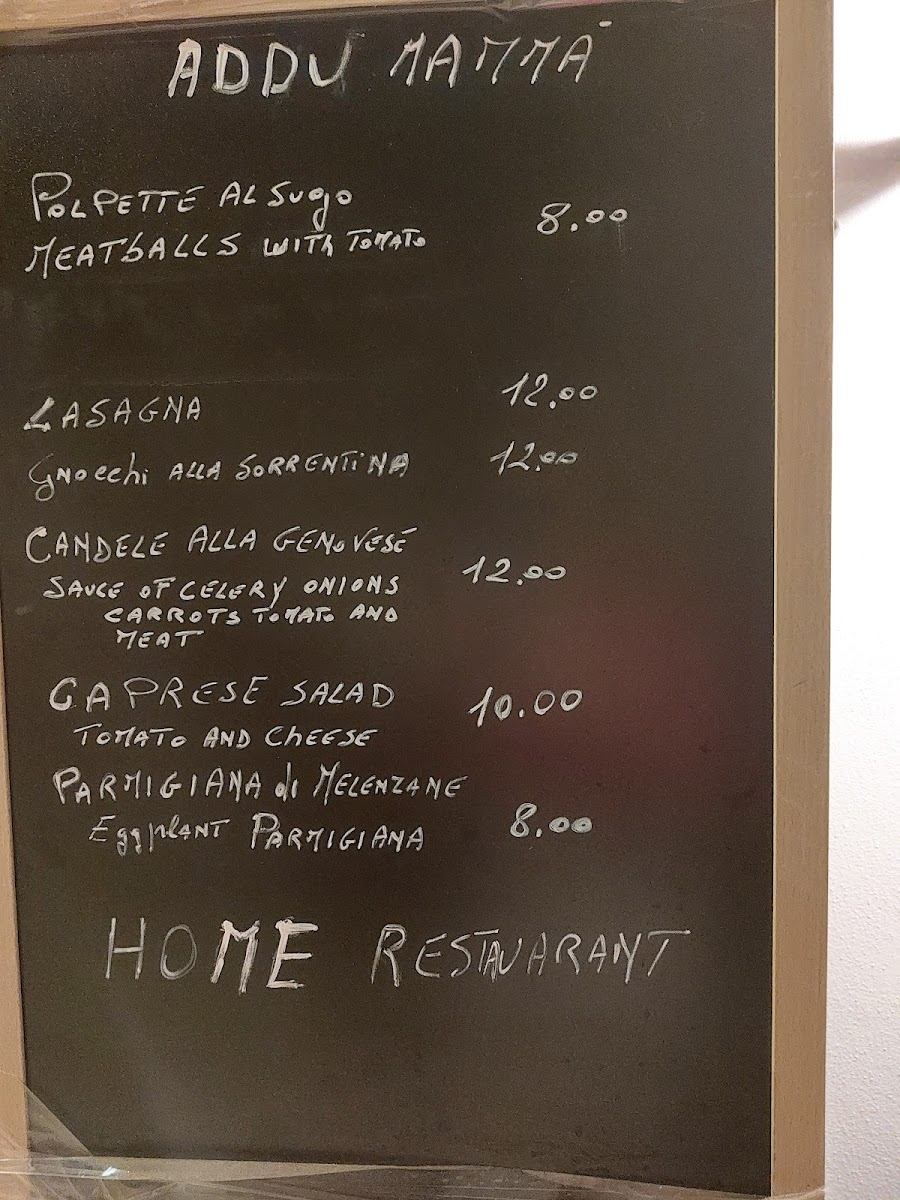 ADDU MAMMÀ
POLPETTE AL SUgo
MEATBALLS WITH TOMATO
8.00
LASAGNA 12.00
Gnocchi ALLA SORRENTINA 12.00
CANDELE ALLA GENOVESE
SAUCE OF CELERY ONIONS 12.00
CARROTS TOMATO AND
MEAT
CAPRESE SALAD 10.00
TOMATO AND CHEESE
PARMIGIANA di MELENZANE
EggplANT PARMIGIANA 8.00
HOME RESTAUARANT